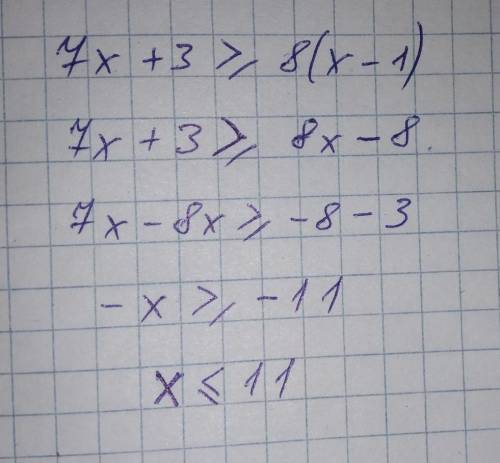 7x + 3 ⩾ 8(x - 1)
7x + 3 ⩾ 8x - 8.
7x - 8x ⩾ -8 - 3
-x ⩾ -11
x ⩽ 11